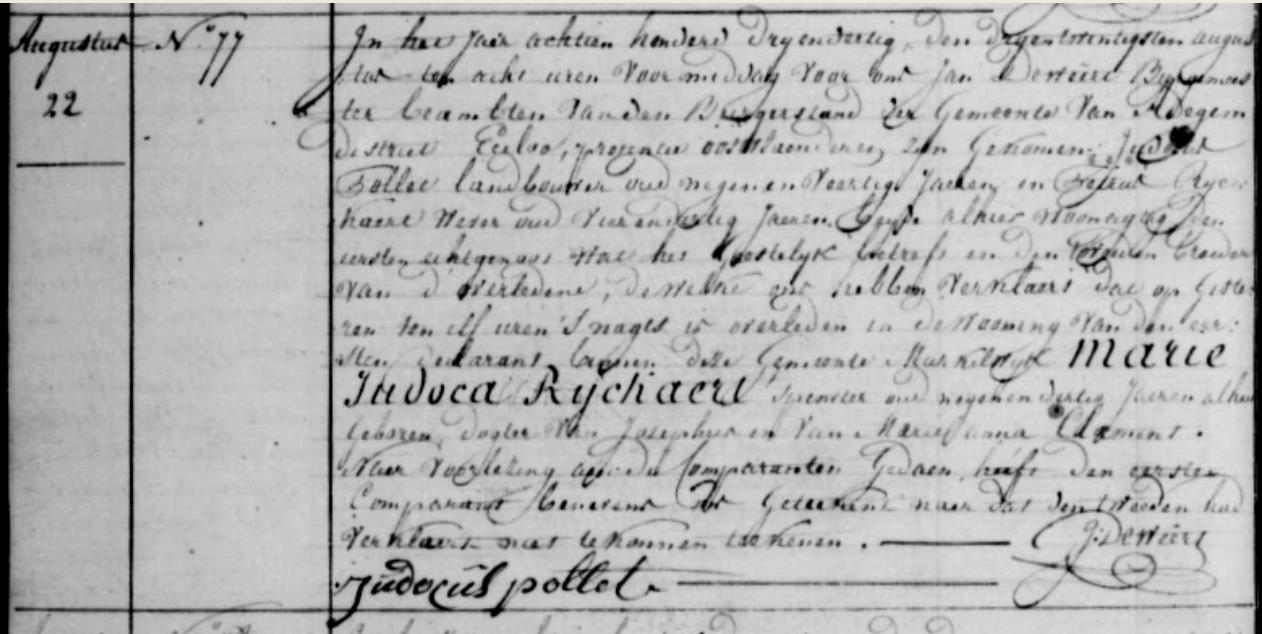 Augustus
22
N.º 77
In het Jaer achtien honderd dryendertig, den dryentwintigsten augus
tus ten acht uren Voormiddag Voor ons Jan Deweirt Burgemees
ter beambten Van den Burgerstand der Gemeente Van Adegem
district Eecloo, provencie oostvlaenderen, zyn Gekomen Judocus
Pollet landbouwer oud negenenveertig Jaeren, en Petrus Ryc
haert Wever oud Vierendertig Jaeren beyde alhier Woonagtig, Den
eersten echtgenoos Wat het Geestelyk betreft en den tweeden broeder
Van d'overledene, dewelke ons hebben Verklaert dat op Giste
ren ten elf uren S'nagts is overleden in de wooning Van den eer-
sten declarant, binnen deze Gemeente Murkelwyk Marie
Judoca Rÿchaert Spinster oud negenendertig Jaeren alhier
Geboren, dogter Van Josephus en Van Marie anna Clament.
Naer Voorlezing aen de Comparanten Gedaen, heeft den eersten
Comparant benevens ons Geteekent naer dat den tweeden had
Verklaert niet te konnen teekenen.
J: Deweirt
Judocus pollet